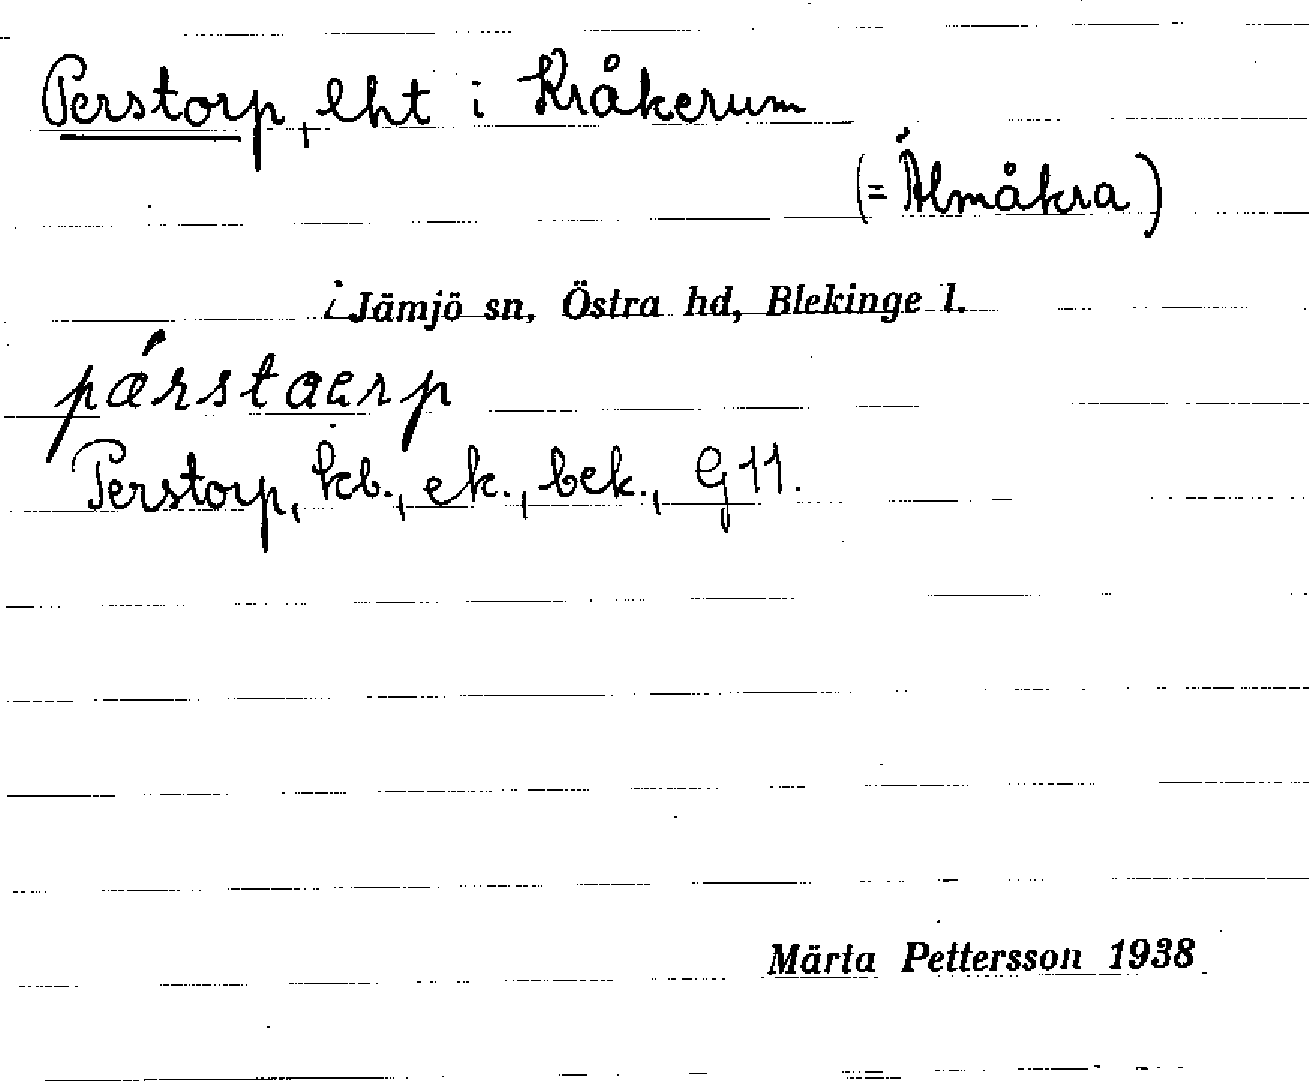 Perstorp, lht i Kråkerum
(= Álmåkra)
i Jämjö sn, Östra hd, Blekinge l.
pǽrstaerp
Perstorp, kb., ek., bek., G11.
Märta Pettersson 1938